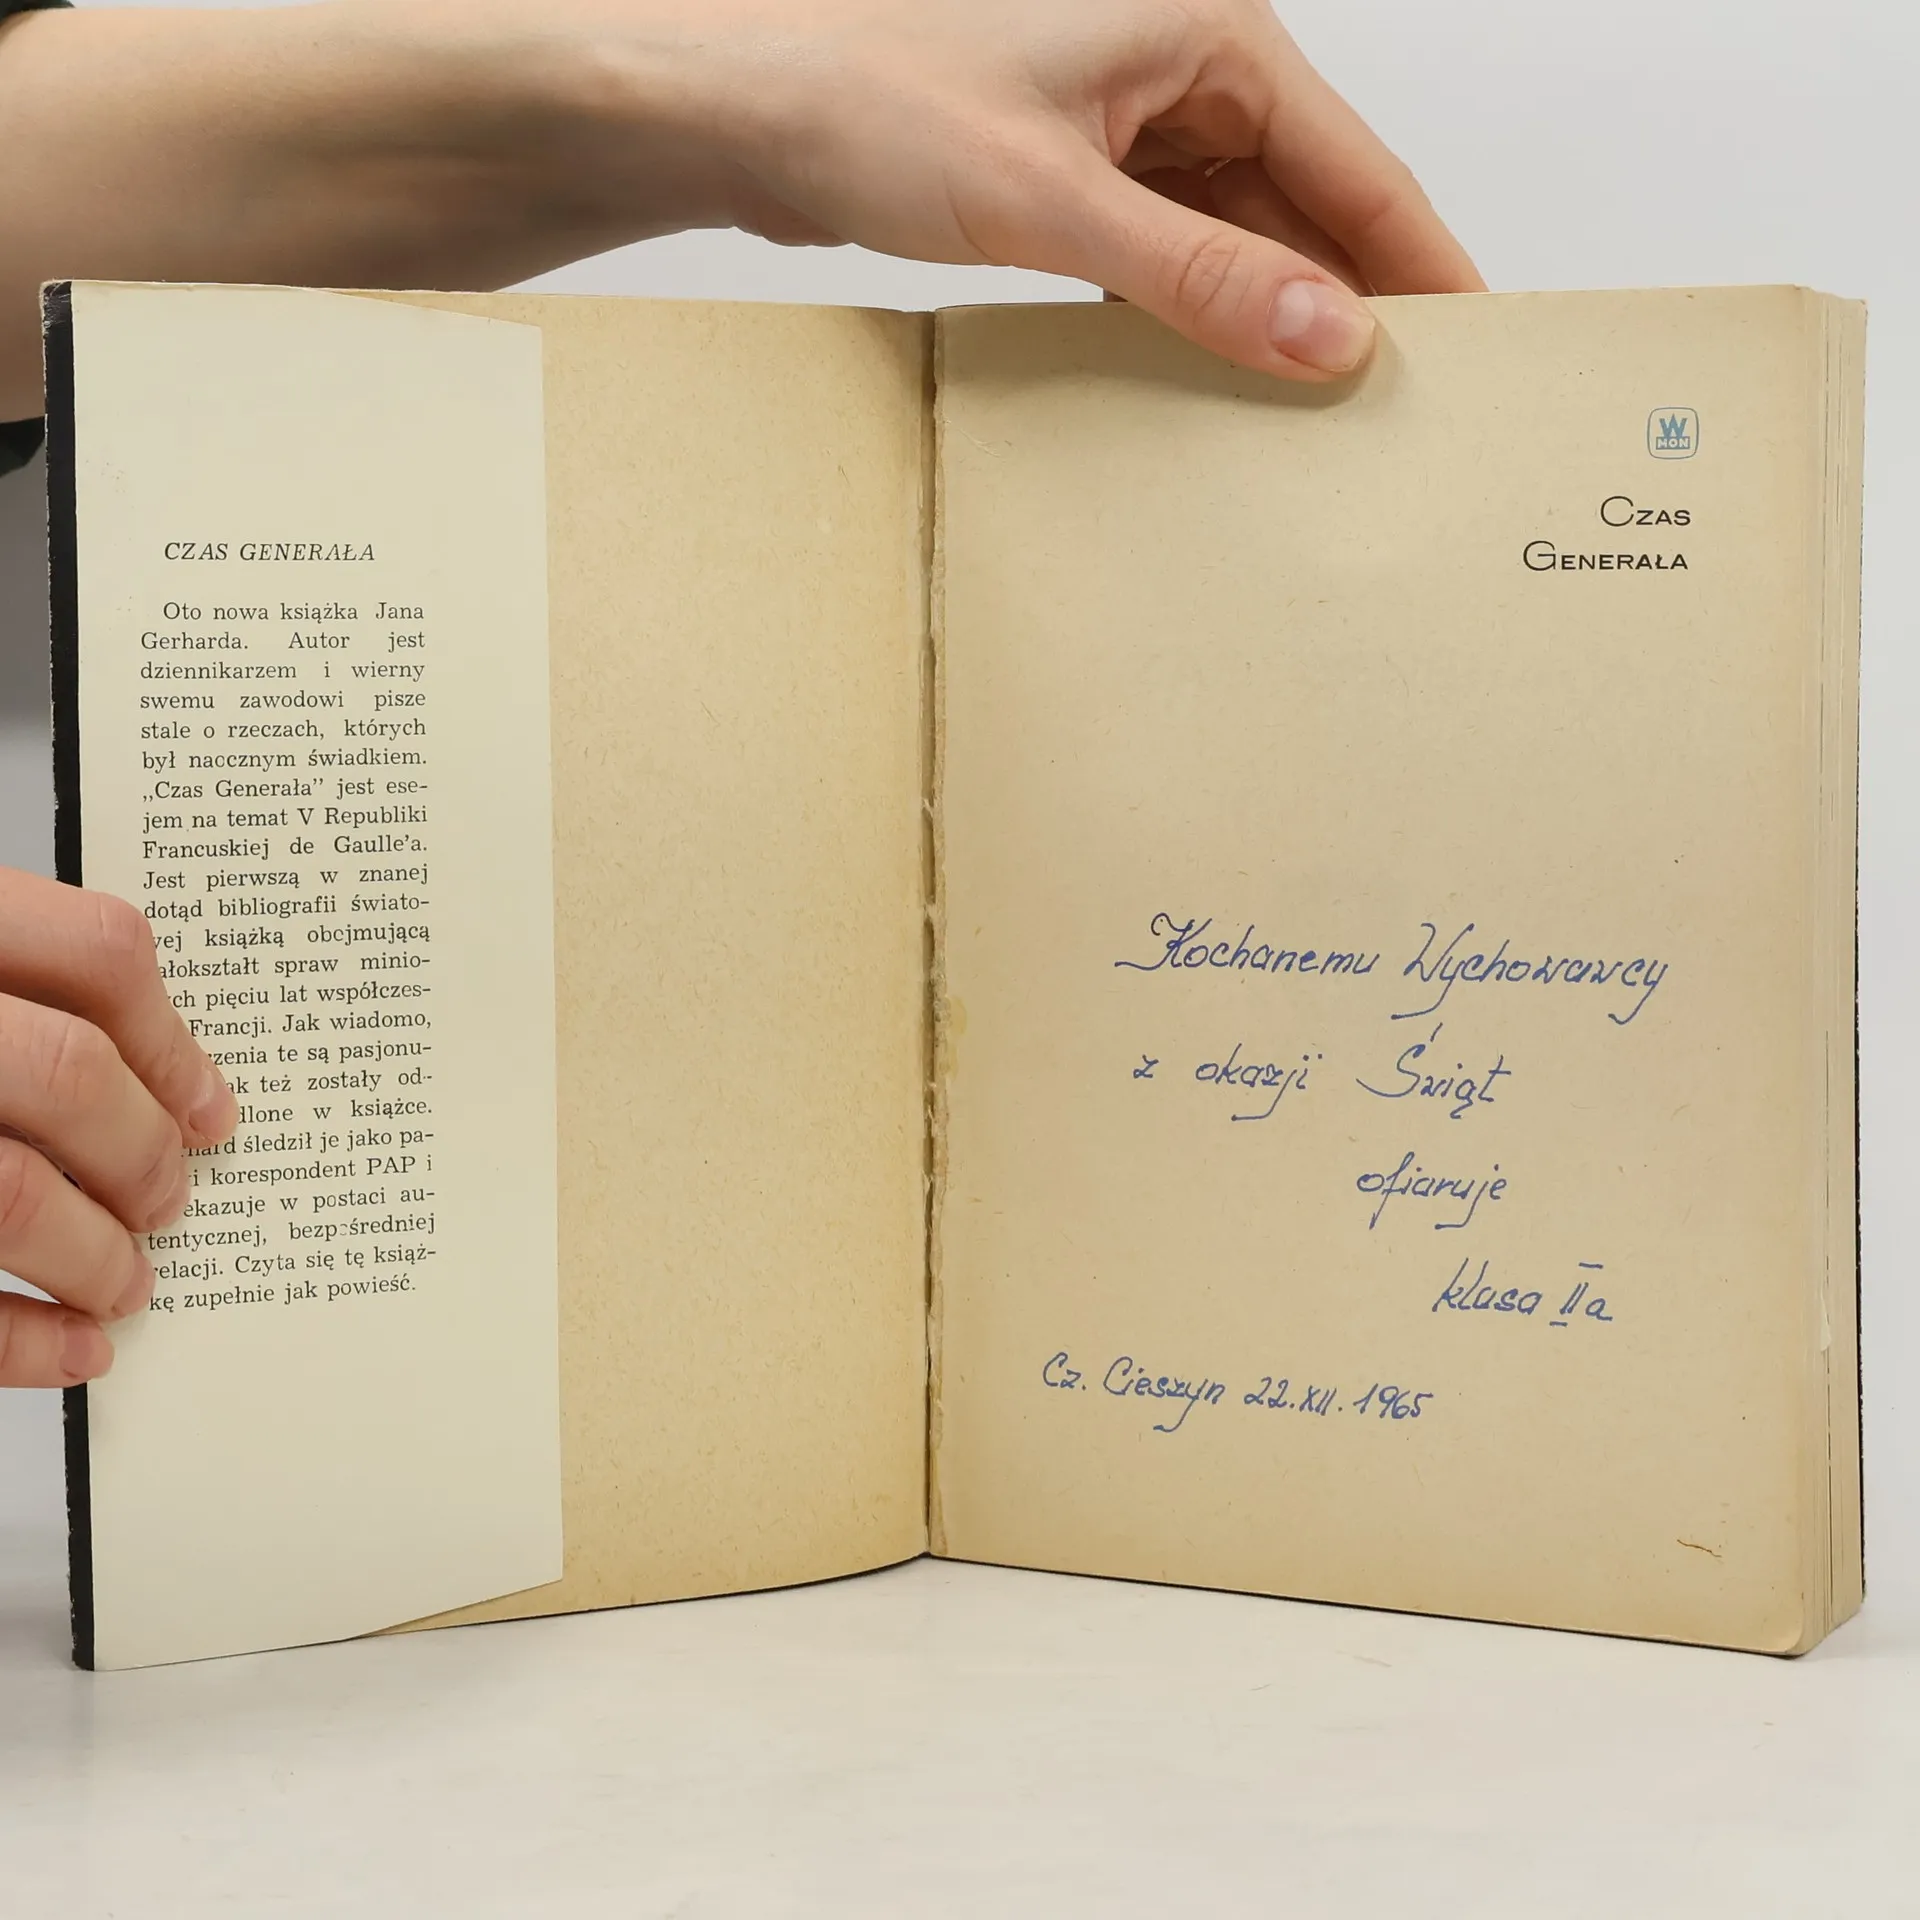 CZAS GENERAŁA
Oto nowa książka Jana
Gerharda. Autor jest
dziennikarzem i wierny
swemu zawodowi pisze
stale o rzeczach, których
był naocznym świadkiem.
„Czas Generała” jest ese-
jem na temat V Republiki
Francuskiej de Gaulle'a.
Jest pierwszą w znanej
dotąd bibliografii świato-
wej książką obejmującą
ałokształt spraw minio-
ch pięciu lat współczes-
Francji. Jak wiadomo,
rzenia te są pasjonu-
ak też zostały od-
dlone w książce.
hard śledził je jako pa-
i korespondent PAP i
ekazuje w postaci au-
tentycznej, bezpośredniej
relacji. Czyta się tę książ-
kę zupełnie jak powieść.
W
MON
CZAS
GENERAŁA
Kochanemu Wychowawcy
z okazji Świąt
ofiaruje
klasa IIa
Cz. Cieszyn 22.XII.1965